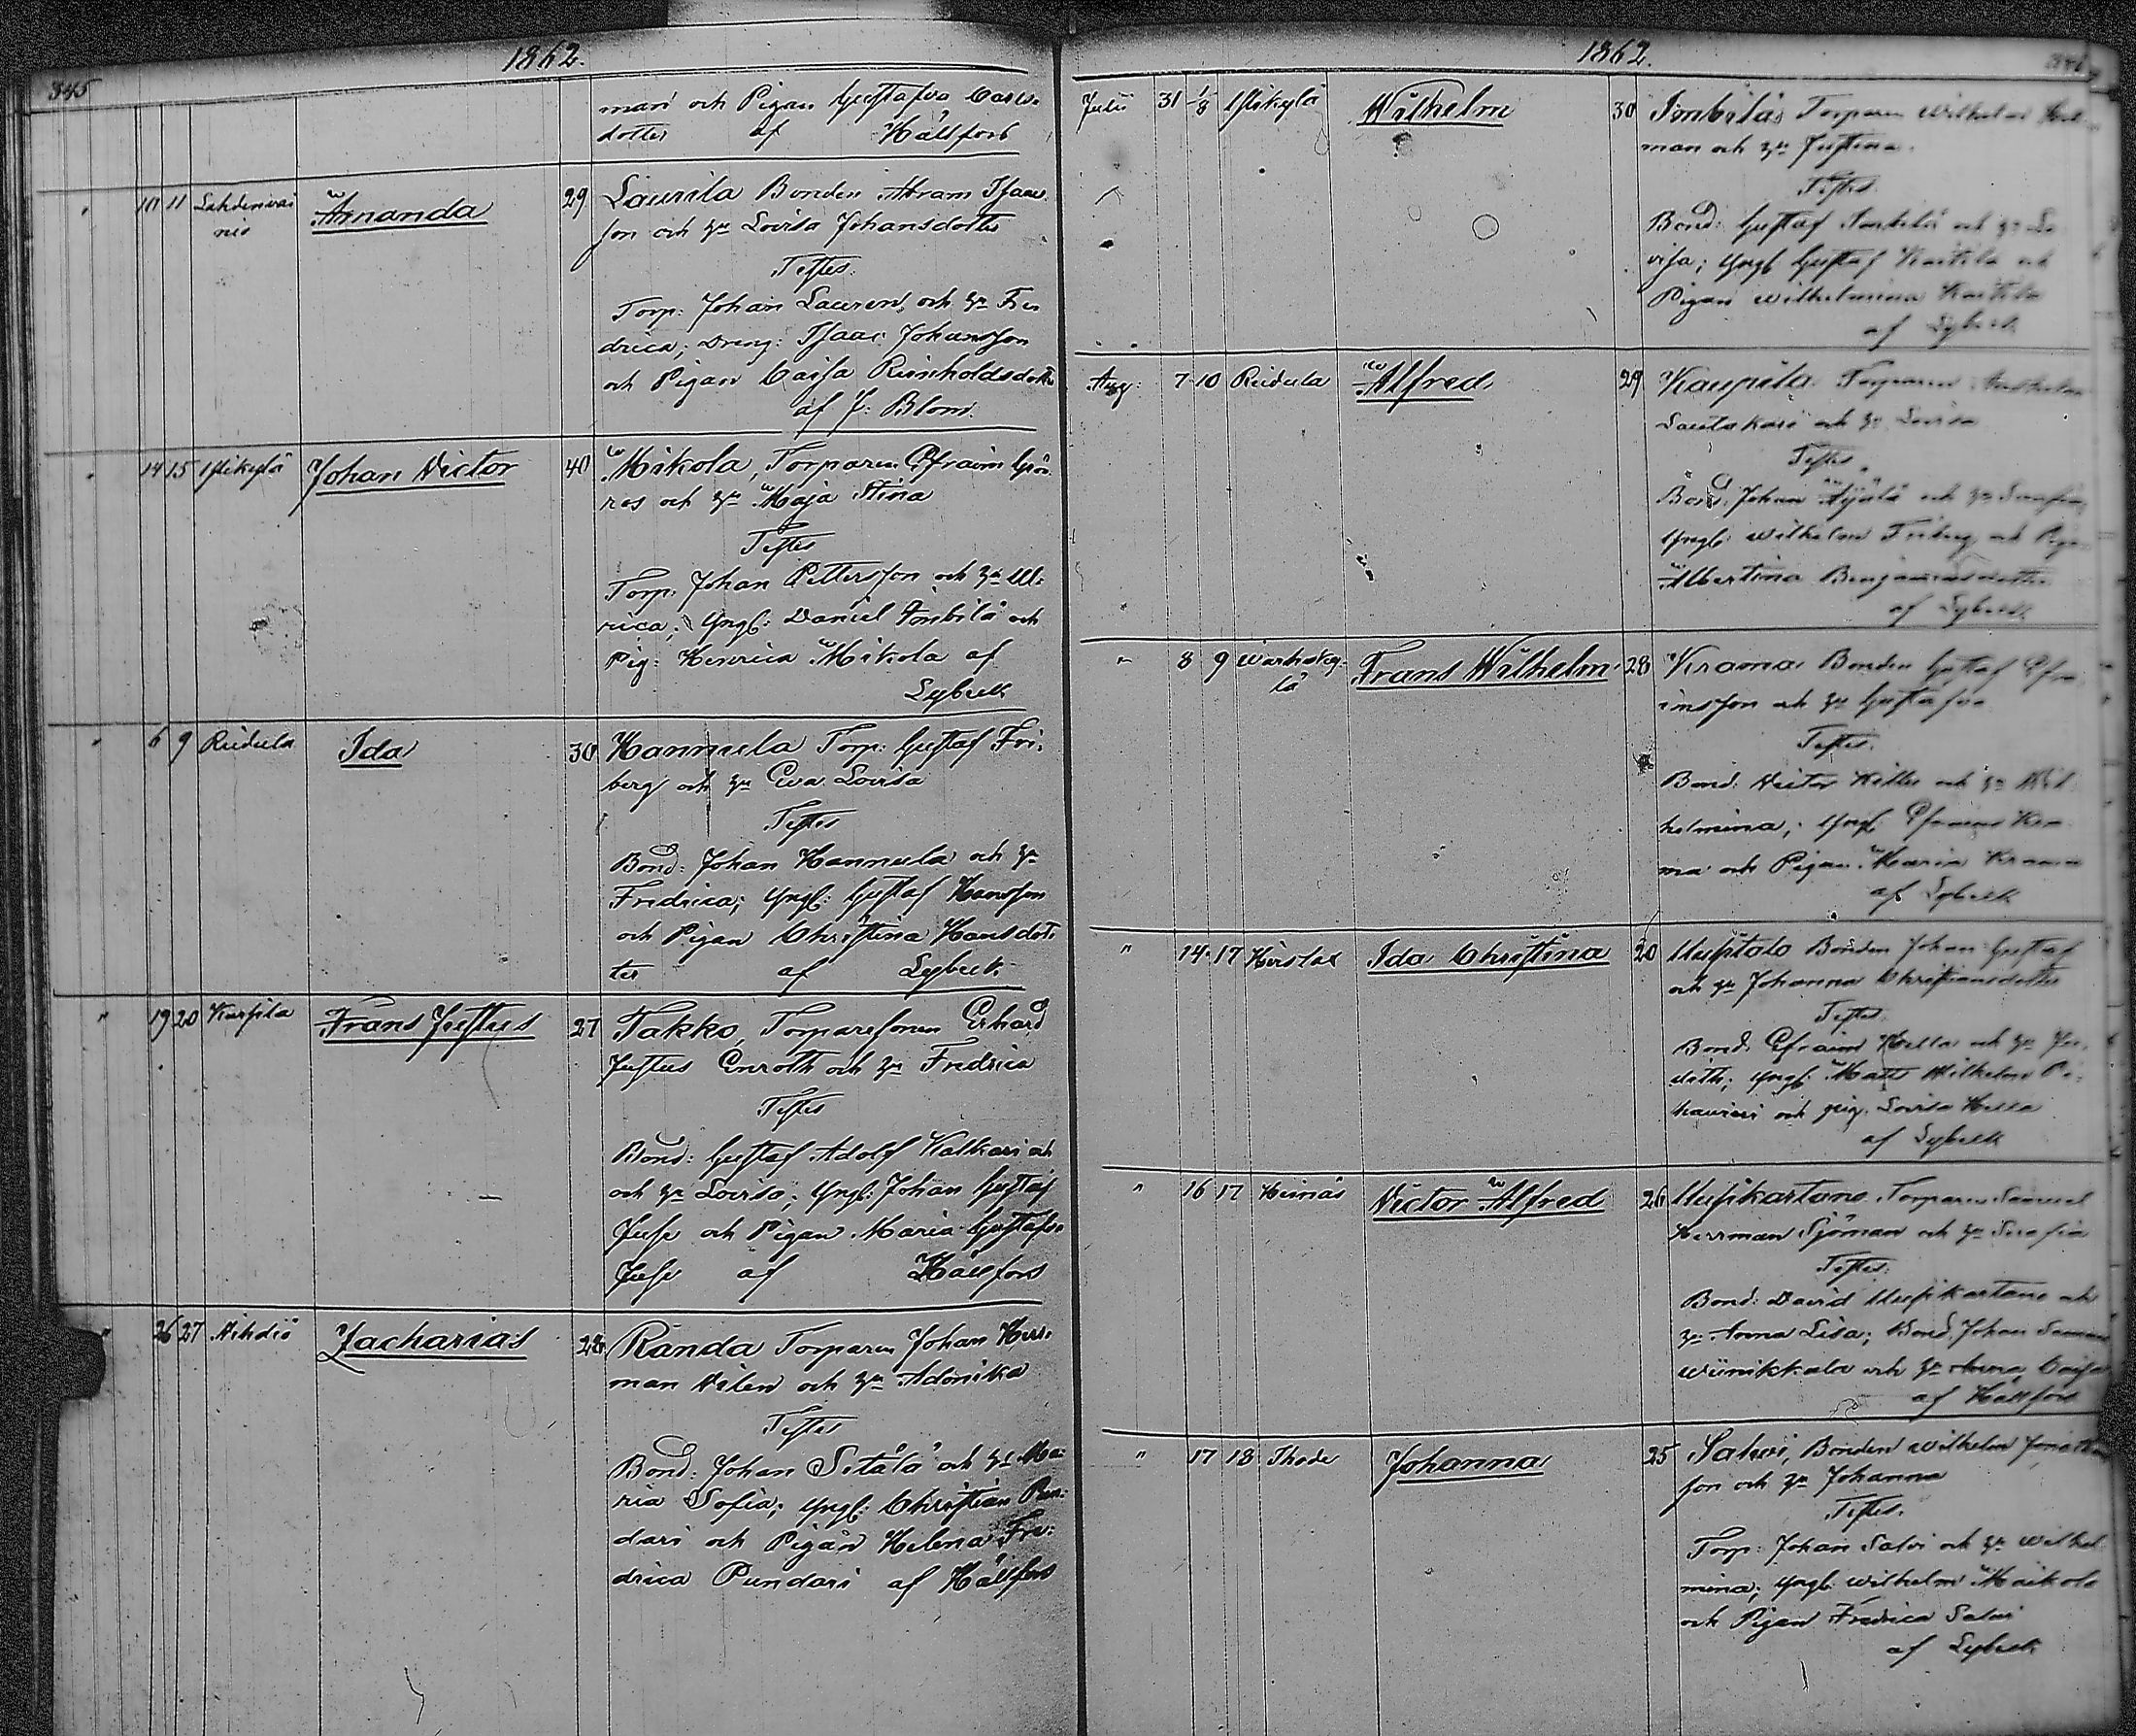 1862.
345
man och Pigan Gustafva Carls
dotter af Hällfors
" 10 11 Lahdenvai
nio
Amanda 29 Laurila Bonden Abram Isaac
son och hu Lovisa Johansdotter
Testes.
Torp: Johan Lauren och hu Fre
drica; Dreng: Isaac Johansson
och Pigan Caisa Reinholdsdotter
af J: Blom.
" 14 15 Ylikylä Johan Victor 40 Mikola, Torparen Efraim Grön
ros och hu Maja Stina
Testes
Torp. Johan Pettersson och hu Ul:
rica; Yngl: Daniel Imbilä och
Pig: Henrica Mikola af
Lybeck
" 6 9 Reidula Ida 30 Hannula Torp: Gustaf Fri:
berg och hu Eva Lovisa
Testes
Bond: Johan Hannula och hu
Fredrica; Yngl: Gustaf Hansson
och Pigan Christina Hansdot:
ter af Lybeck
" 19 20 Karsila Frans Justus 27 Takko, Torparesonen Erhard
Justus Enroth och hu Fredrica
Testes
Bond: Gustaf Adolf Kalkari och
och hu Lovisa; Yngl: Johan Gustaf
Juse och Pigan Maria Gustafva
Juse af Hällfors
" 26 27 Aihdiö Zacharias 28 Randa Torparen Johan Her:
man Silen och hu Adonika
Testes
Bond: Johan Setälä och hu Ma:
ria Sofia; Yngl: Christian Pun:
dari och Pigan Helena Fre:
drica Pundari af Hällfors
1862.
Julii 31 1/8 Ylikylä Wilhelm 30 Imbilä, Torparen Wilhelm
man och hu Justina.
Testes
Bond: Gustaf Imbilä och hu Lo
visa; Yngl: Gustaf Kaitila och
Pigan Wilhelmina Kaitila
af Lybeck
Aug: 7 10 Reidula Alfred 29 Kaupila Torparen
Lautakari och hu Lovisa
Testes
Bond: Johan Äijälä och hu Serafia,
Yngl: Wilhelm Friberg och Pigan
Albertina Benjaminsdotter
af Lybeck
" 8 9 Warhoky
lä
Frans Wilhelm 28 Krama Bonden Gustaf Efra
imsson och hu Gustafva
Testes.
Bond: Victor Killu och hu Wil
helmina; Yngl: Efraim Kra
ma och Pigan Maria Krama
af Lybeck
" 14 17 Heislax Ida Christina 20 Uusitalo Bonden Johan Gustaf
och hu Johanna Christiansdotter
Testes.
Bond: Efraim Hella och hu Ju
dith; Yngl: Matts Wilhelm
och pig. Lovisa Hella
af Lybeck
" 16 17 Heinäs Victor Alfred 26 Uusikartano Torparen Samuel
Herrman Sjöman och hu Serafia
Testes:
Bond: David Uusikartano och
hu Anna Lisa; Bond. Johan Samuel
Wiinikkala och hu Anna Caisa
af Hällfors
" 17 18 Thode Johanna 25 Salvi, Bonden Wilhelm
son och hu Johanna
Testes.
Torp: Johan Salvi och hu Wilhel
mina; Yngl: Wilhelm Maikola
och Pigan Fredrica Salvi
af Lybeck